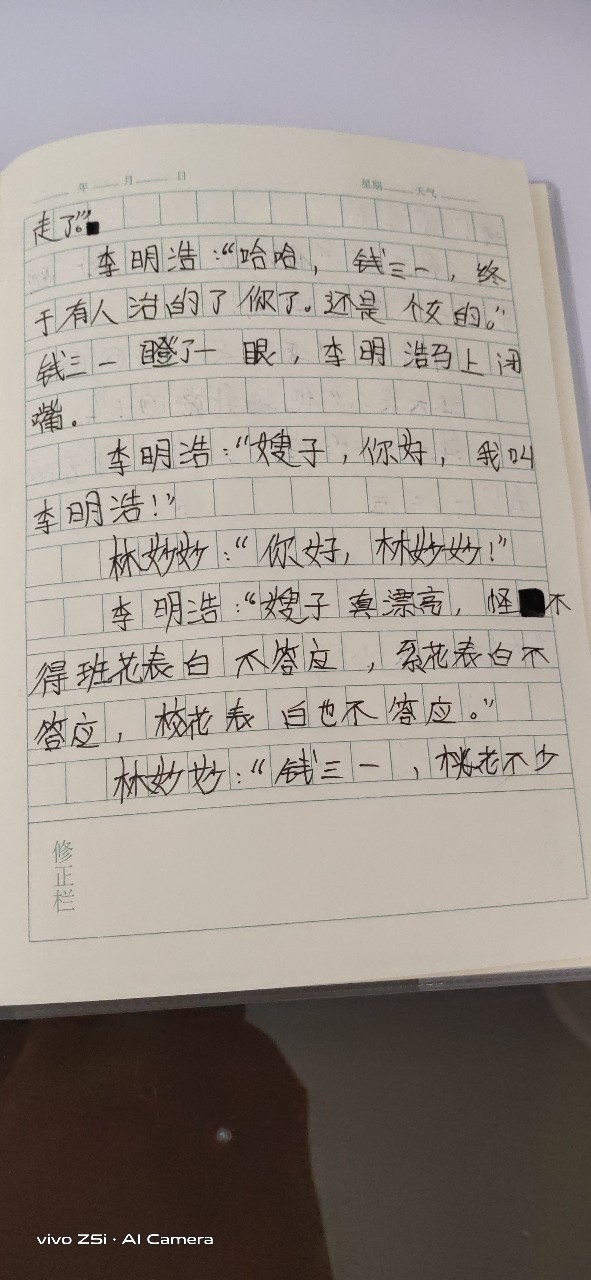 年 月 日 星期 天气
走了。”
李明浩：“哈哈，钱三一，终
于有人治的了你了。还是个女的。”
钱三一瞪了一眼，李明浩马上闭
嘴。
李明浩：“嫂子，你好，我叫
李明浩！”
林妙妙：“你好，林妙妙！”
李明浩：“嫂子真漂亮，怪不
得班花表白不答应，系花表白不
答应，校花表白也不答应。”
林妙妙：“钱三一，桃花不少
修正栏
vivo Z5i · AI Camera